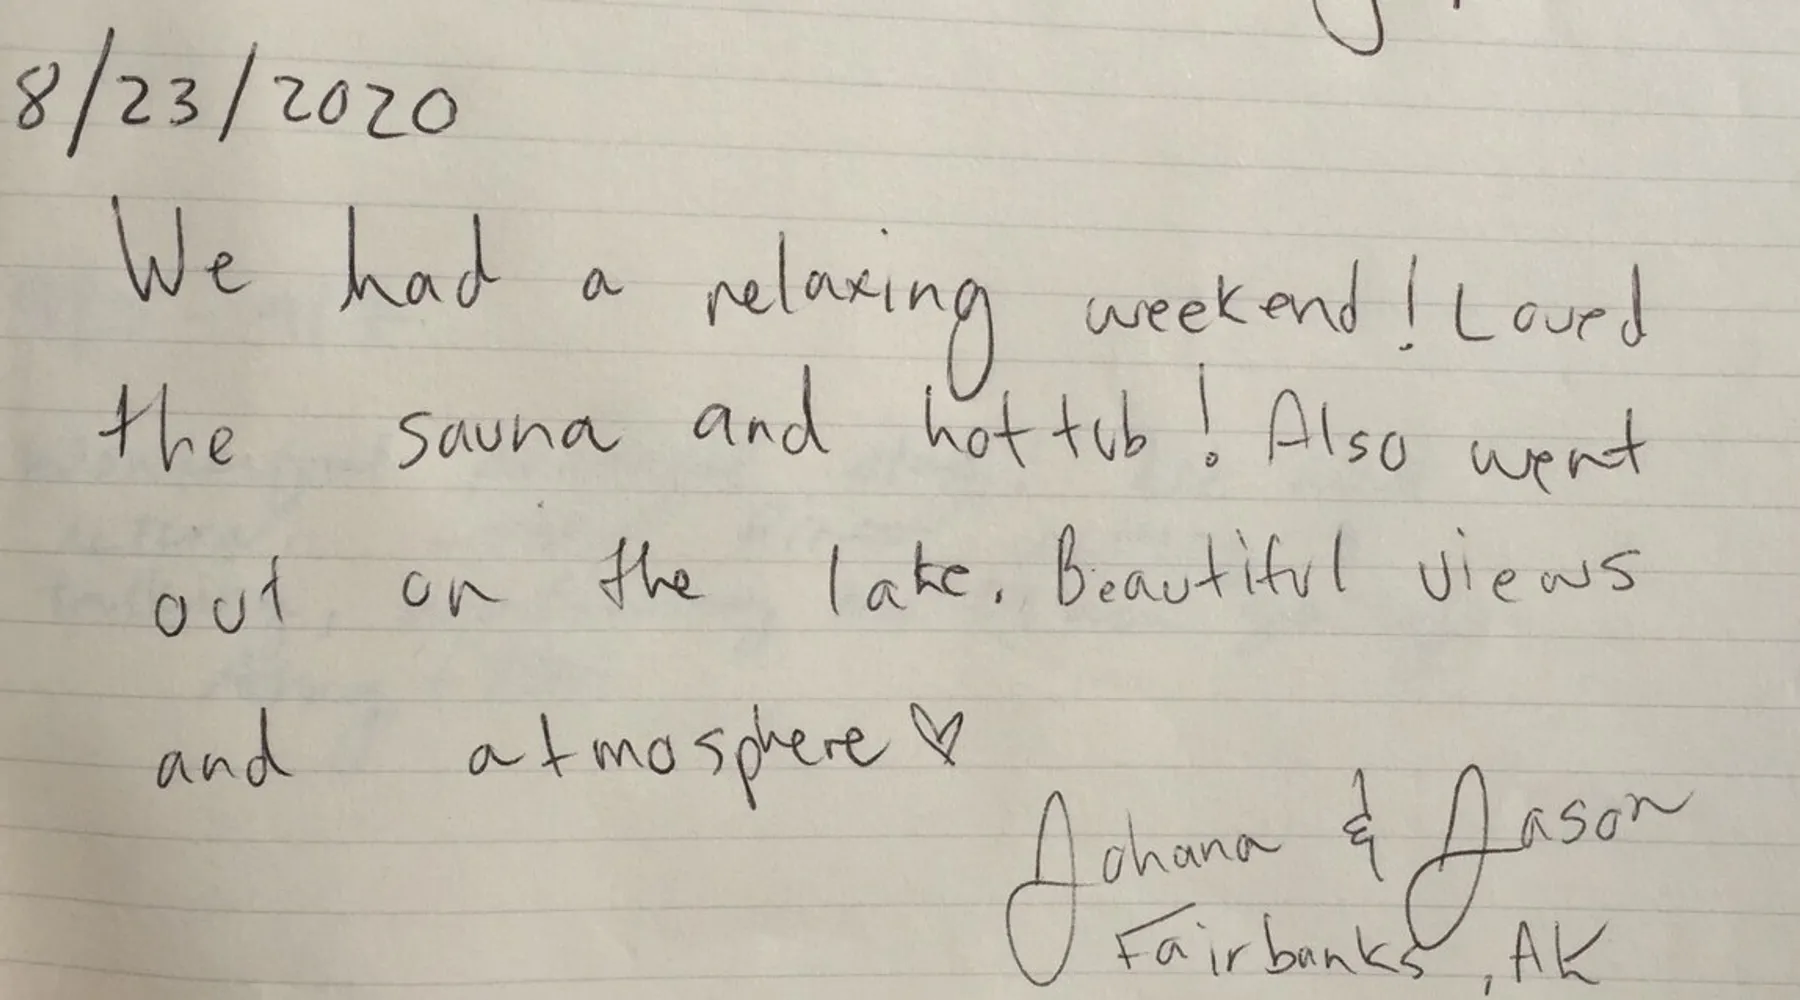 8/23/2020
We had a relaxing weekend! Loved
the sauna and hot tub! Also went
out on the lake. Beautiful views
and atmosphere ♡
Johana & Jason
Fairbanks, AK